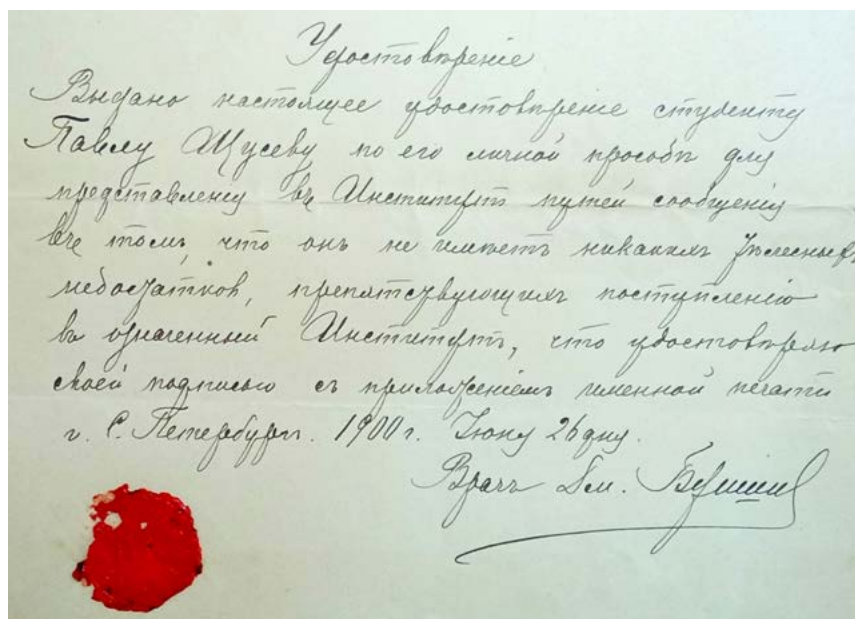 Удостовѣреніе
Выдано настоящее удостовѣреніе студенту
Павлу Щусеву по его личной просьбѣ для
представленія въ Институтъ путей сообщенія
въ томъ, что онъ не имѣетъ никакихъ тѣлесныхъ
недостатковъ, препятствующихъ поступленію
въ означенный Институтъ, что удостовѣряю
своей подписью съ приложеніемъ именной печати
г. С. Петербургъ. 1900 г. Іюня 26 дня.
Врачъ Дм.